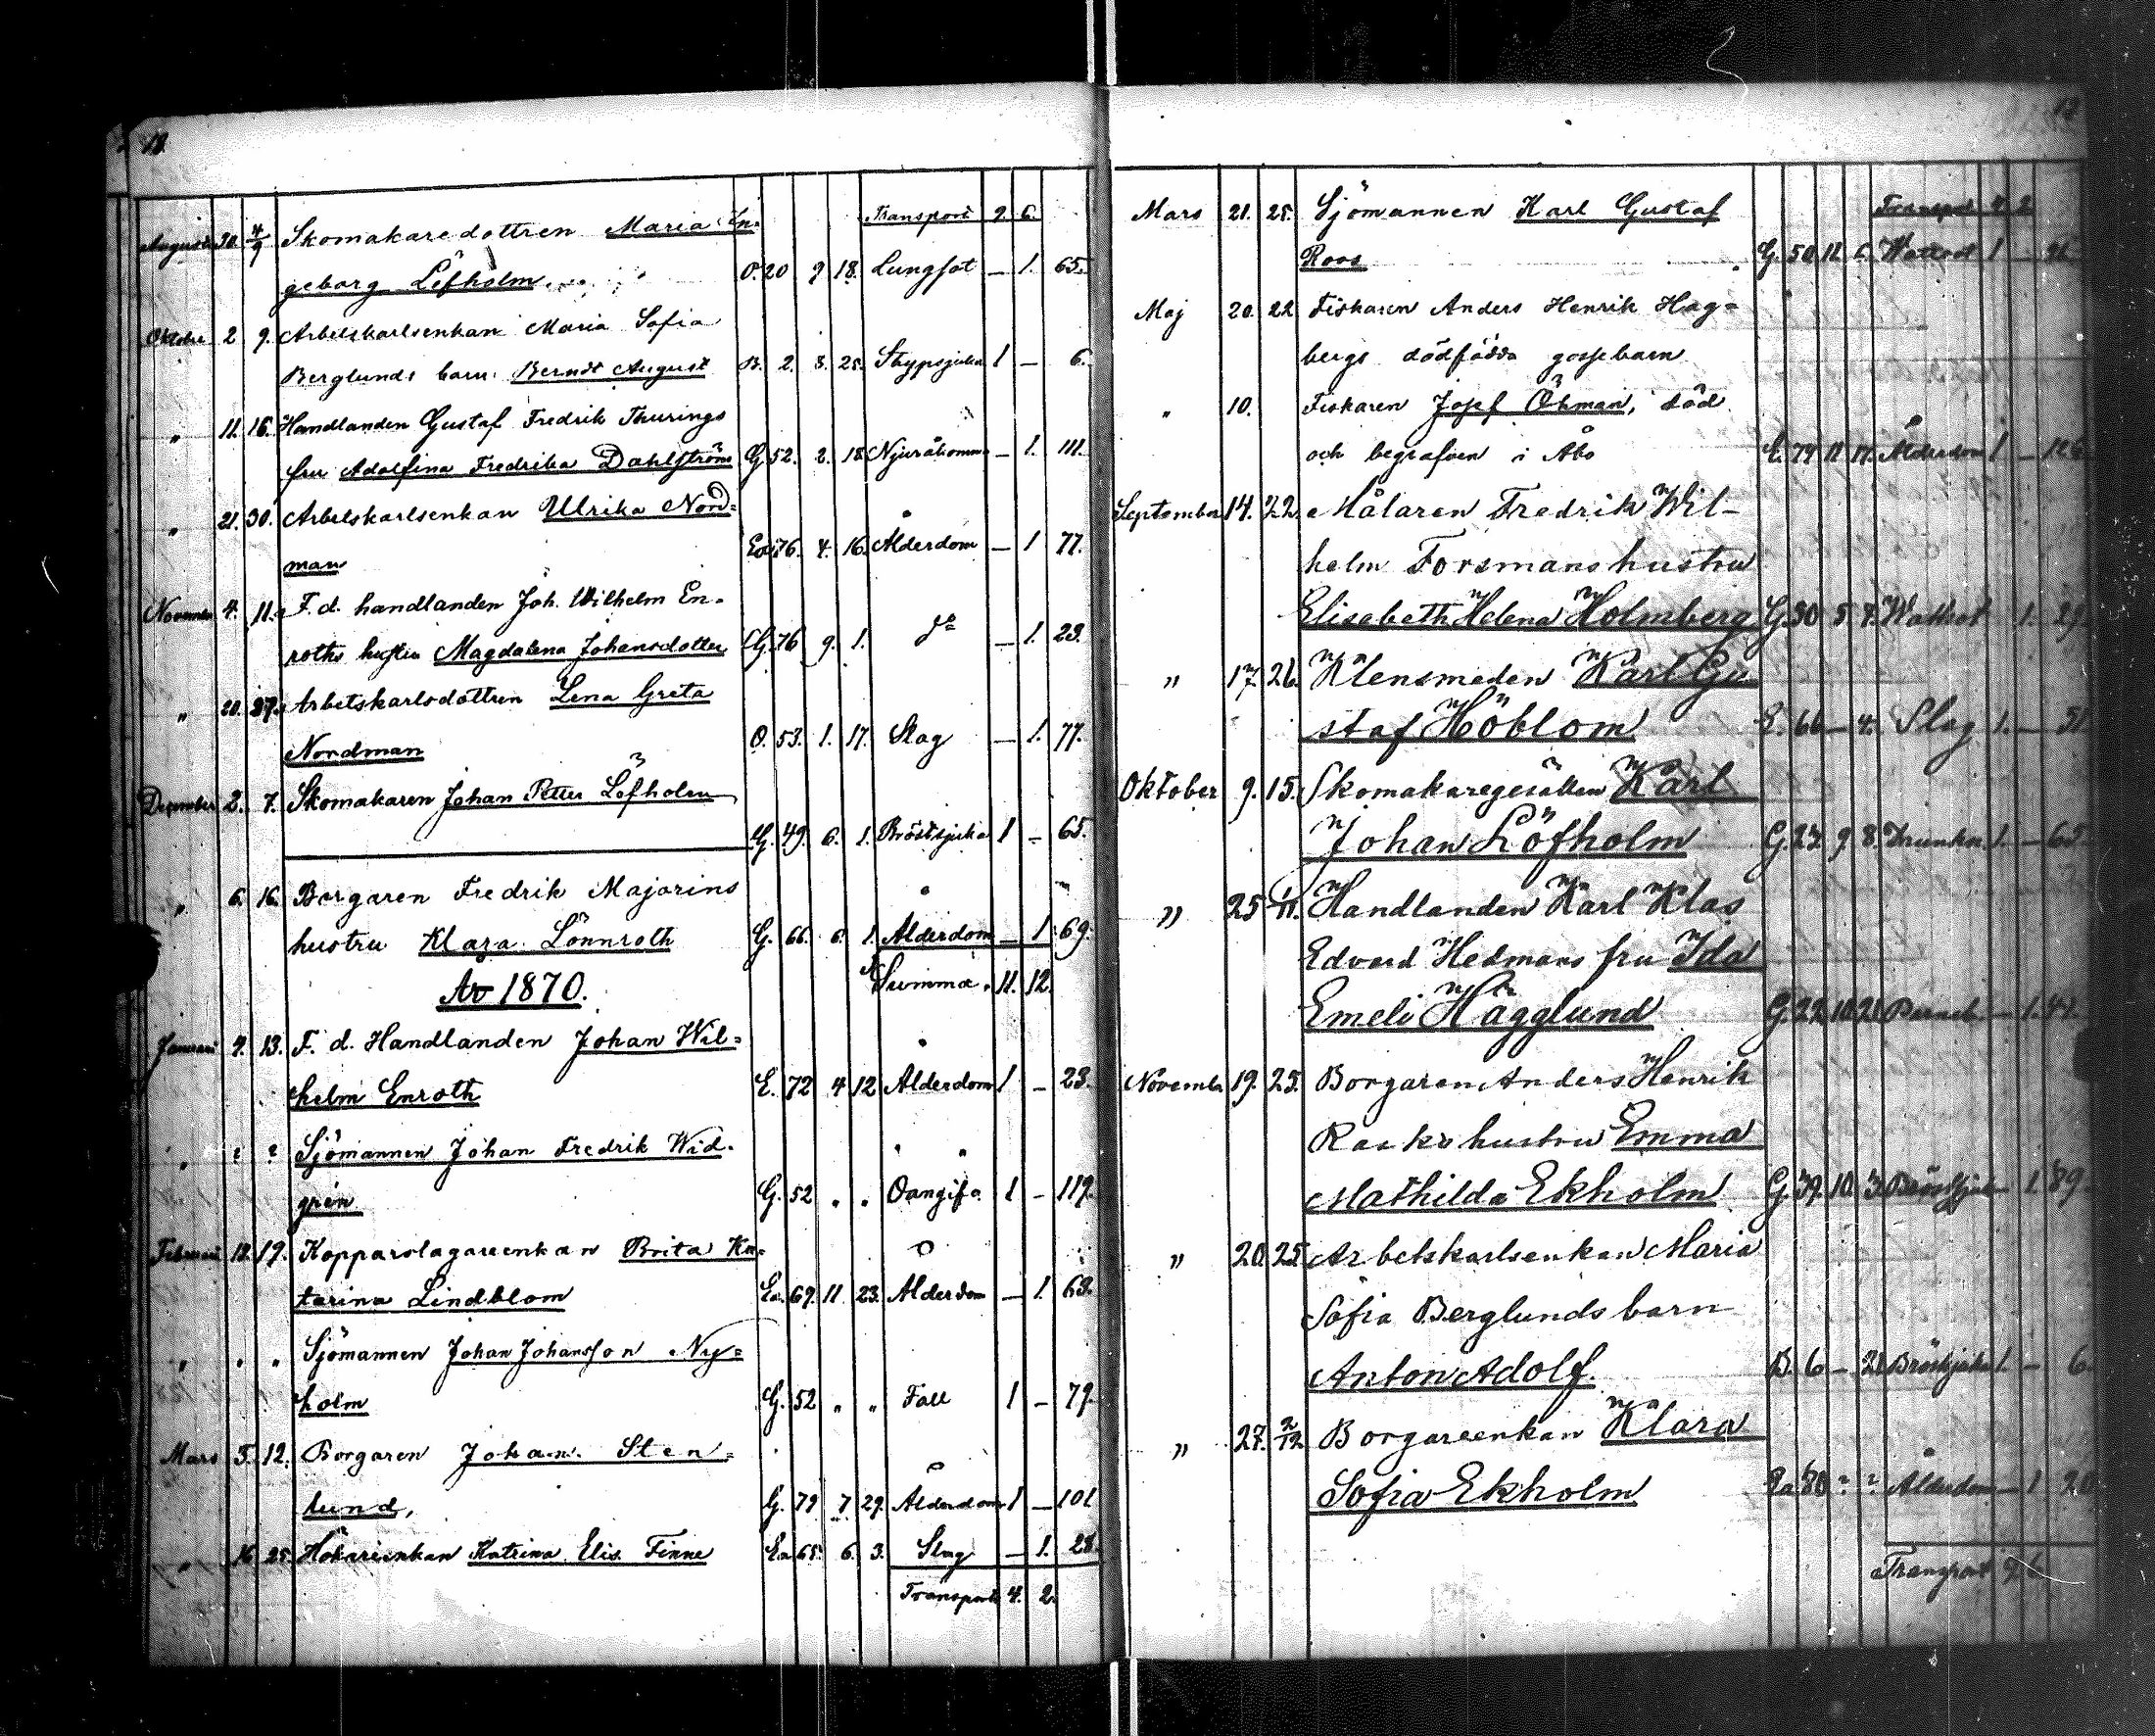 18.
Transport 9. 6.
Augusti 30. 4/9 Skomakaredottren Maria In-
geborg Löfholm O. 20 9 18. Lungsot – 1. 65.
Oktober 2 9. Arbetskarlsenkan Maria Sofia
Berglunds barn Berndt August B. 2. 3. 25. 1 – 6.
" 11. 16. Handlanden Gustaf Fredrik Thurings
fru Adolfina Fredrika Dahlström G. 52. 2. 18. Njuråkomma – 1. 111.
" 21. 30. Arbetskarlsenkan Ulrika Nord-
man Ea 76. 4. 16. Ålderdom – 1 77.
November 4. 11. F. d. handlanden Joh. Wilhelm En-
roths hustru Magdalena Johansdotter G. 76 9. 1. d:o – 1. 23.
" 20. 27. Arbetskarlsdottren Lena Greta
Nordman O. 53. 1. 17. Slag – 1. 77.
December 2. 7. Skomakaren Johan Petter Löfholm
G. 49. 6. 1. Bröstsjuka 1 – 65.
" 6. 16. Borgaren Fredrik Majorins
hustru Klara Lönnroth G. 66. 6. 1. Ålderdom – 1 69.
Summa. 11. 12.
År 1870.
Januari 9. 13. F. d. Handlanden Johan Wil-
helm Enroth E. 72 4 12 Ålderdom 1 – 23.
" ? ? Sjömannen Johan Fredrik Wid-
grén G. 52 " " Oangifv. 1 – 119.
Februari 12. 19. Kopparslagareenkan Brita Ka-
tarina Lindblom Ea. 69. 11 23. Ålderdom – 1. 63.
" " " Sjömannen Johan Johansson Ny-
holm G. 52 " " Fall 1 – 79.
Mars 5. 12. Borgaren Johan Sten-
lund, G. 79 7 29. Ålderdom 1 – 101
" 16 25. Hökareenkan Katrina Elis. Finne Ea 65. 6. 3. Slag – 1. 28.
Transport 4. 2.
Transport 4. 2
Mars 21. 25. Sjömannen Karl Gustaf
Roos G. 50. 11 6. Wattsot 1 –
Maj 20. 22 Fiskaren Anders Henrik Hag-
bergs dödfödda gossebarn
" 10. Fiskaren Josef Öhman, död
och begrafven i Åbo E. 79 11 17. Ålderdom 1 –
September 14. 22. Målaren Fredrik Wil-
helm Forsmans hustru
Elisabeth Helena Holmberg G. 30 5 7. Wattsot 1. 29.
" 17. 26. Klensmeden Karl Gu
staf Höblom E. 66 – 4. Slag 1. – 51
Oktober 9. 15. Skomakaregesällen Karl
Johan Löfholm G. 27 9 8. Drunkn. 1. – 65.
" 25 /11. Handlanden Karl Klas
Edvard Hedmans fru Ida
Emeli Hägglund G. 22 10 21 Barnsb. – 1. 41.
November 19. 25. Borgaren Anders Henrik
hustru Emma
Mathilda Ekholm G. 39. 10. 3. Bröstsjuk 1. 89.
" 20. 25 Arbetskarlsenkan Maria
Sofia Berglunds barn
Anton Adolf. B. 6 – 21 Bröstsjuka 1. – 6.
" 27. 2/12 Borgareenkan Klara
Sofia Ekholm Ea 80 ? ? Ålderdom – 1 20
Transport 9 6